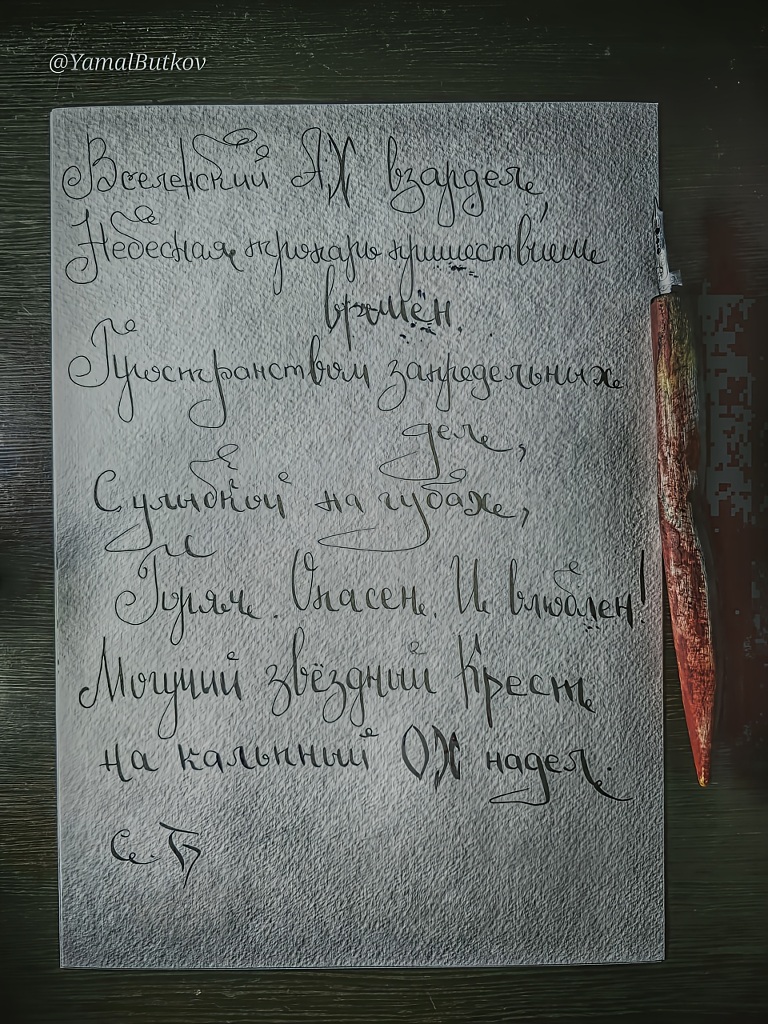 @YamalButkov
Вселенский АХ взардел,
Небесная
времён.
Пространством запредельных
дел,
С улыбкой на губах,
Упрям. Опасен. И влюблен!
Могучий звёздный Крест
на кальпный ОХ надел.
С.Б